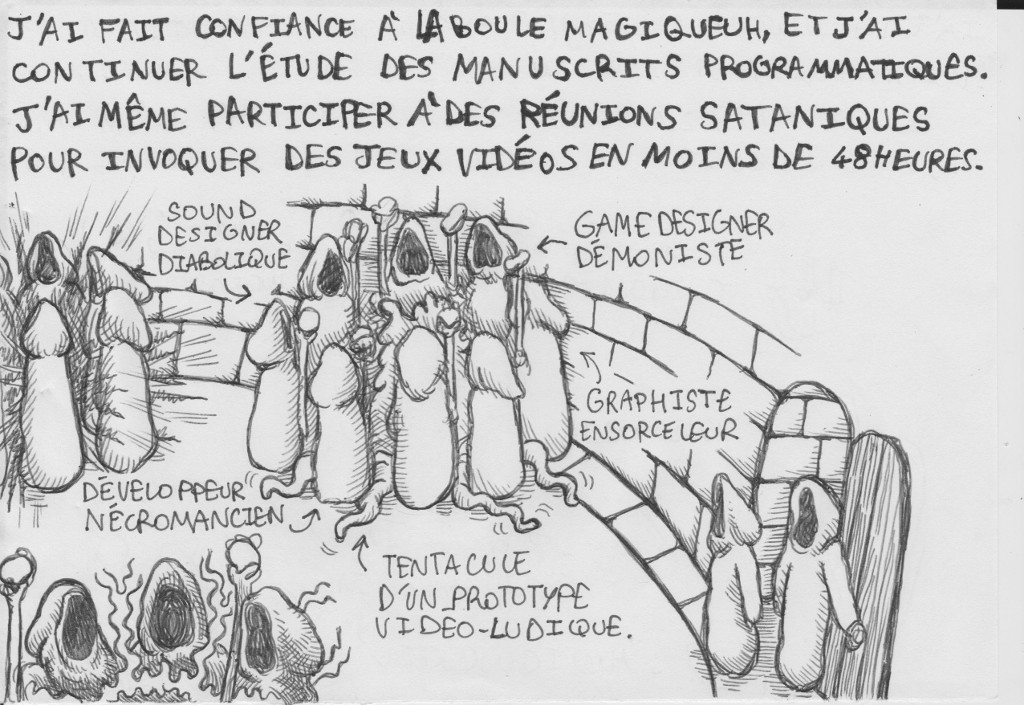 J'AI FAIT CONFIANCE À LA BOULE MAGIQUEUH, ET J'AI
CONTINUER L'ÉTUDE DES MANUSCRITS PROGRAMMATIQUES.
J'AI MÊME PARTICIPER À DES RÉUNIONS SATANIQUES
POUR INVOQUER DES JEUX VIDÉOS EN MOINS DE 48 HEURES.
SOUND
DESIGNER
DIABOLIQUE
GAME DESIGNER
DÉMONISTE
GRAPHISTE
ENSORCELEUR
DÉVELOPPEUR
NÉCROMANCIEN
TENTACULE
D'UN PROTOTYPE
VIDEO-LUDIQUE.